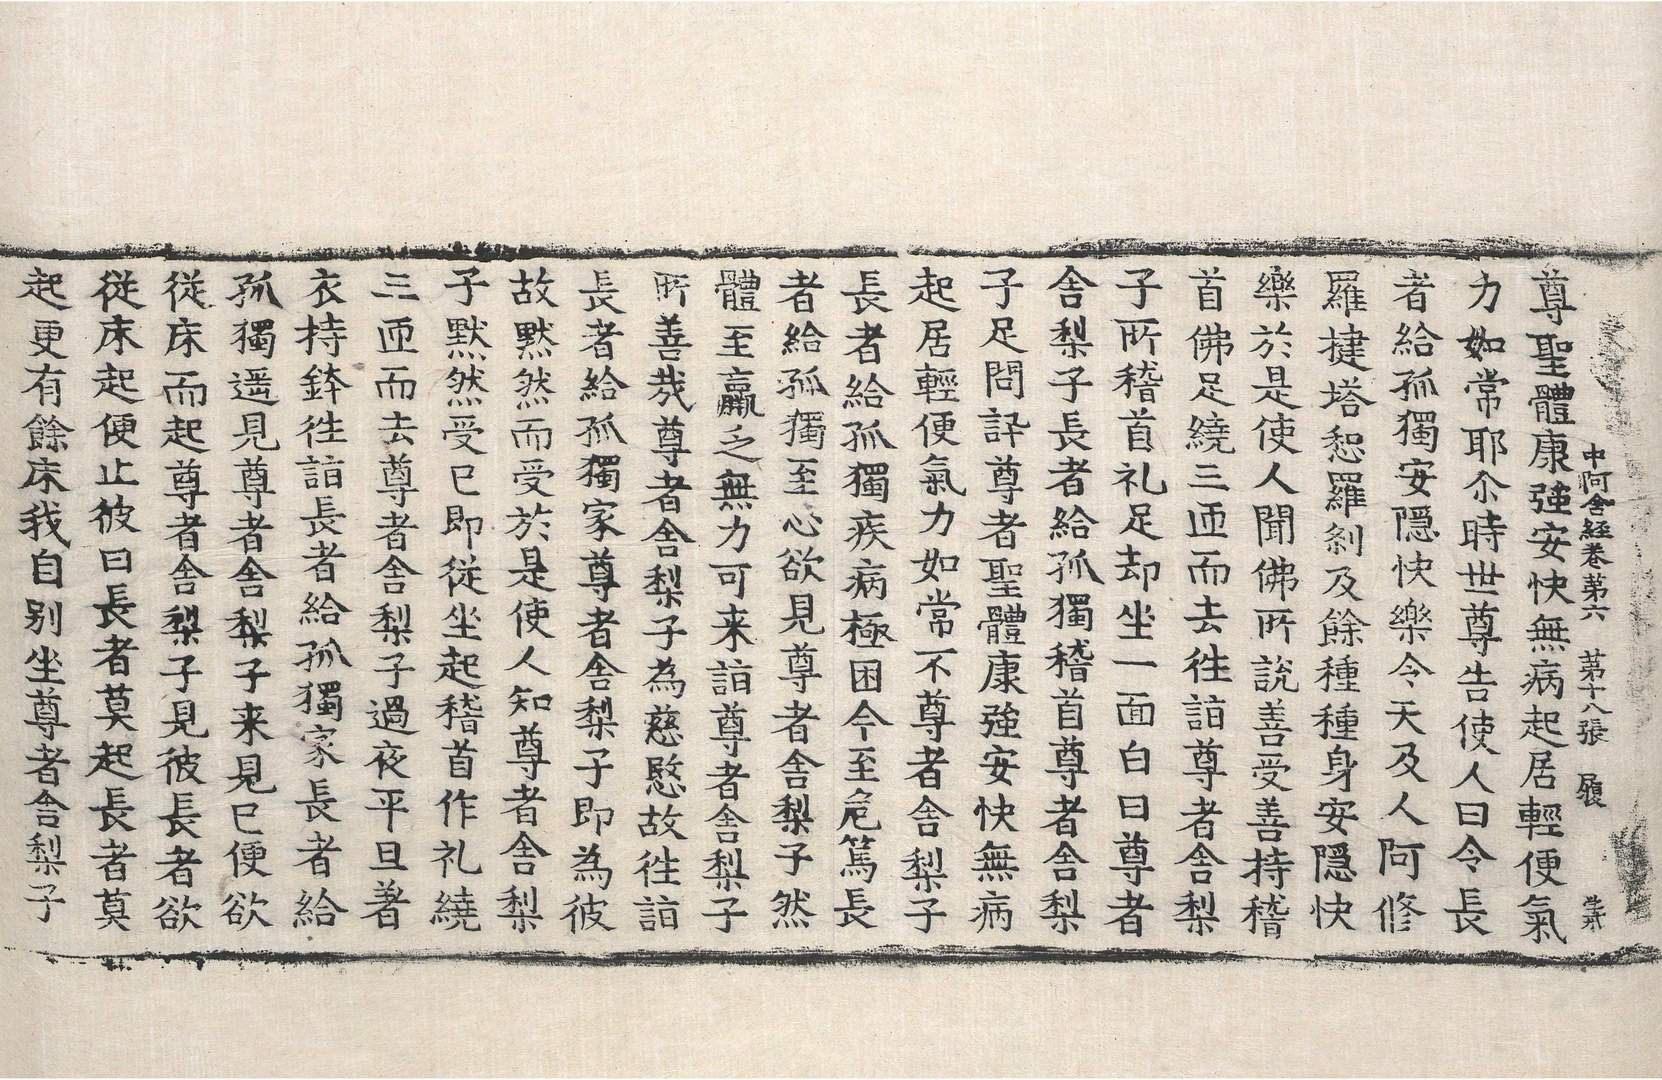 中阿含經卷第六 第十八張 履
尊聖體康強安快無病起居輕便氣
力如常耶尒時世尊告使人曰令長
者給孤獨安隱快樂令天及人阿修
羅揵塔恕羅剎及餘種種身安隱快
樂於是使人聞佛所說善受善持稽
首佛足繞三匝而去往詣尊者舍梨
子所稽首礼足却坐一面白曰尊者
舍梨子長者給孤獨稽首尊者舍梨
子足問訊尊者聖體康強安快無病
起居輕便氣力如常不尊者舍梨子
長者給孤獨疾病極困今至危篤長
者給孤獨至心欲見尊者舍梨子然
體至羸乏無力可来詣尊者舍梨子
所善哉尊者舍梨子為慈愍故往詣
長者給孤獨家尊者舍梨子即為彼
故默然而受於是使人知尊者舍梨
子默然受已即從坐起稽首作礼繞
三匝而去尊者舍梨子過夜平旦著
衣持鉢往詣長者給孤獨家長者給
孤獨遥見尊者舍梨子来見已便欲
從床而起尊者舍梨子見彼長者欲
從床起便止彼曰長者莫起長者莫
起更有餘床我自别坐尊者舍梨子